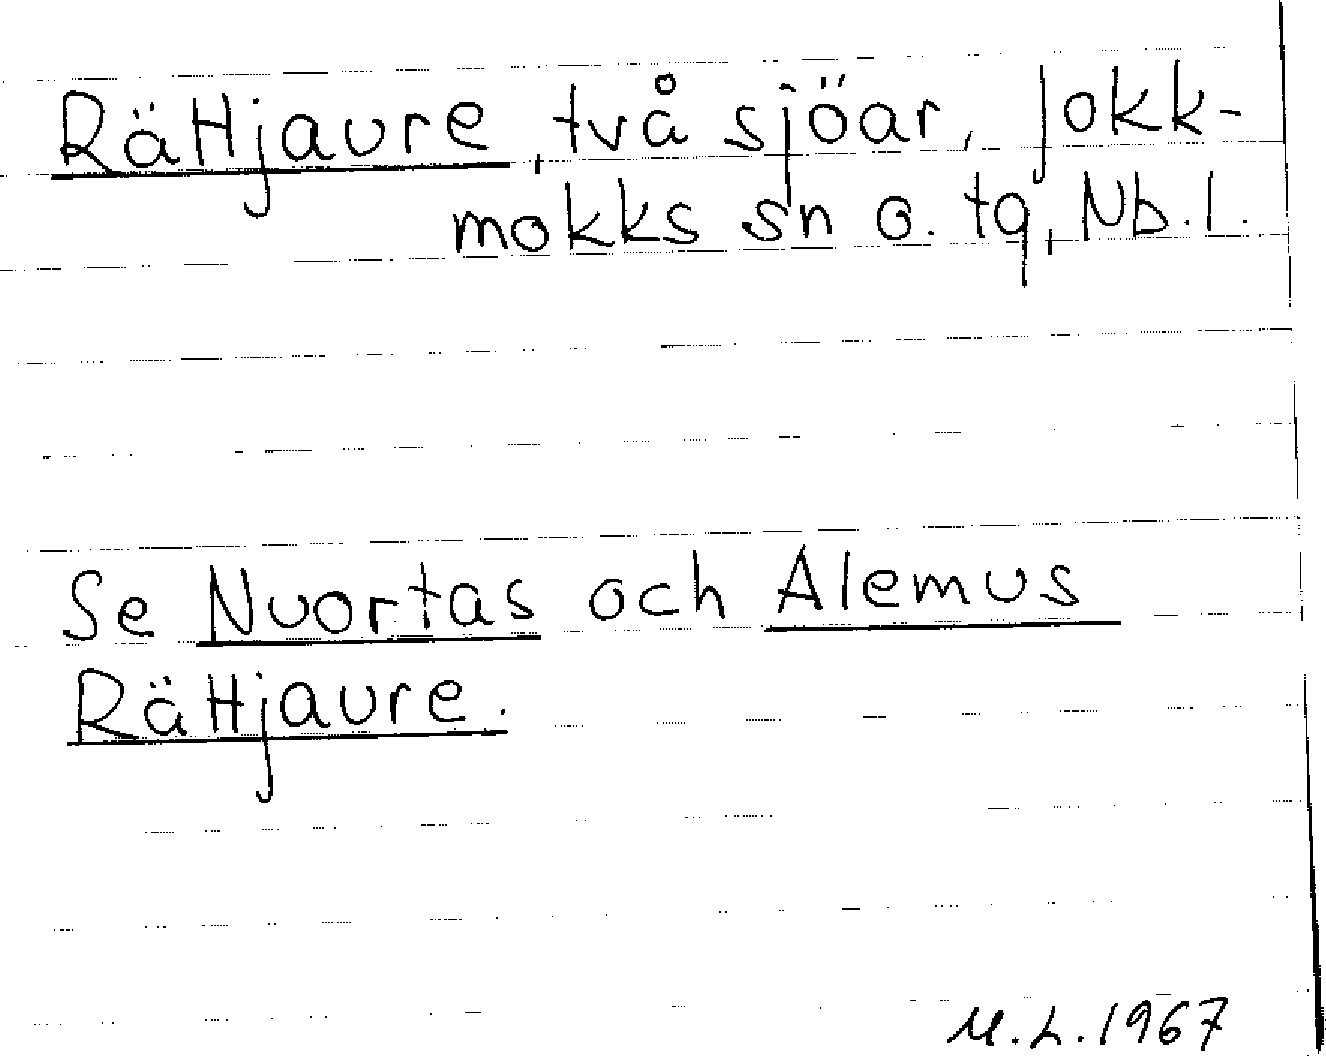 Rättjaure, två sjöar, Jokk-
mokks sn o. tg, Nb.l.
Se Nuortas och Alemus
Rättjaure.
M.L. 1967